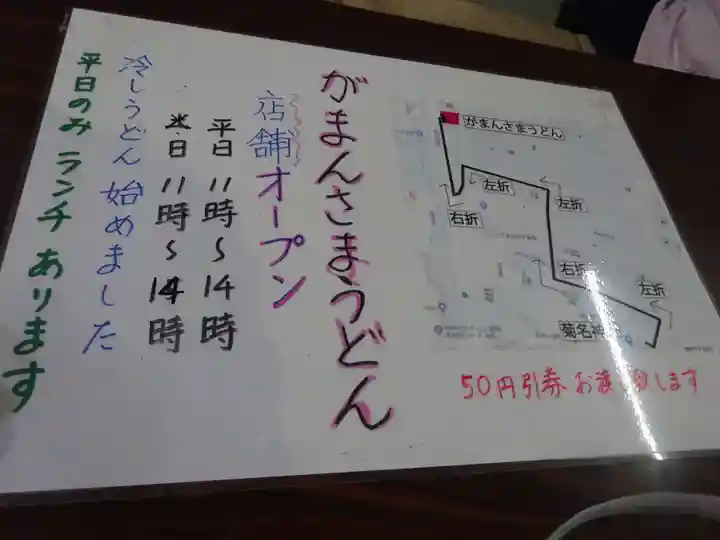 がまんさまうどん
店舗オープン
平日 11時〜14時
日 11時〜14時
冷しうどん始めました
平日のみランチあります
がまんさまうどん
左折
左折
右折
右折
左折
菊名神
50円引券お渡し致します